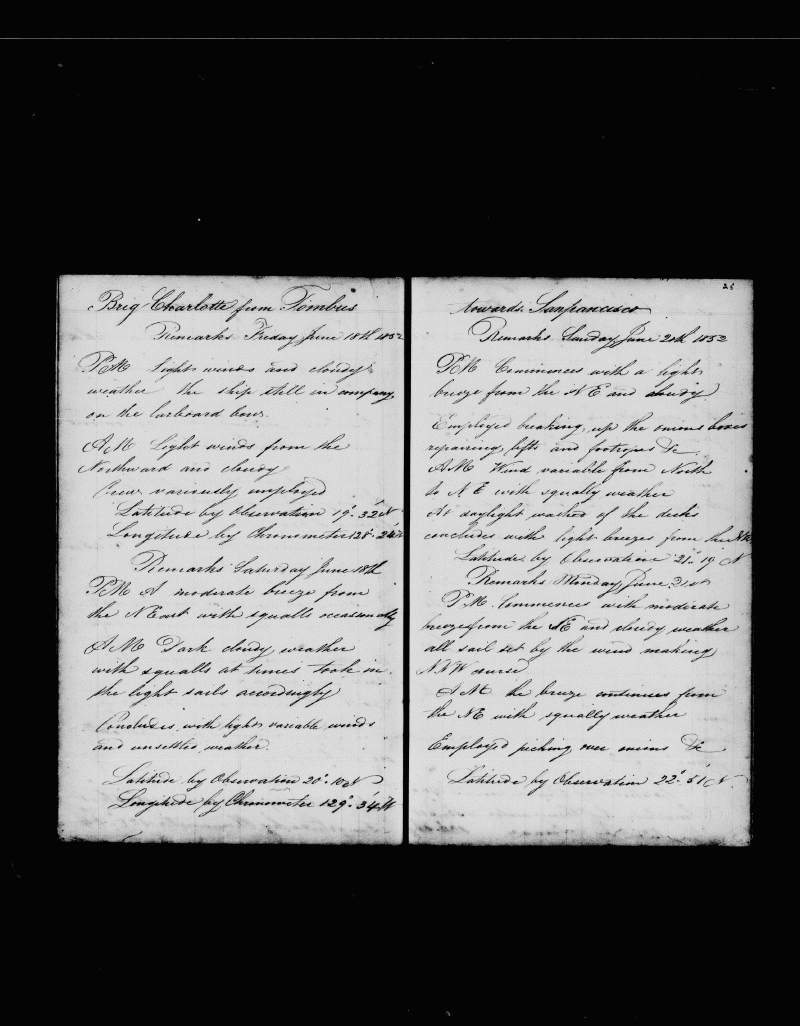 Brig Charlotte from Tombus
Remarks Friday June 18th 1852
PM Light winds and cloudy
weather the ship still in company
on the larboard bow.
AM Light winds from the
Northward and cloudy
Crew variously employed
Latitude by Observation 19°. 32' N
Longitude by Chronometer 128°.
Remarks Saturday June 18th
PM A moderate breeze from
the N East with squalls occasionally
AM Dark cloudy weather
with squalls at times took in
the light sails accordingly
Concludes with light variable winds
and unsettled weather.
Latitude by Observation 20°. 10 N
Longitude by Chronometer 129°. 34' W
28
towards Sanfrancisco
Remarks Sunday June 20th 1852
PM Commences with a light
breeze from the N E and cloudy
Employed breaking up the onions boxes
repairing lifts and footropes &c
AM Wind variable from North
to N E with squally weather
At daylight washed of the decks
concludes with light breezes from the
Latitude by Observation 21°. 19 N
Remarks Monday June 21st
PM. Commences with moderate
breezes from the NE and cloudy weather
all sail set by the wind making
N N W course
AM the breeze continues from
the NE with squally weather
Employed picking over onions &c
Latitude by Observation 22°. 51 N